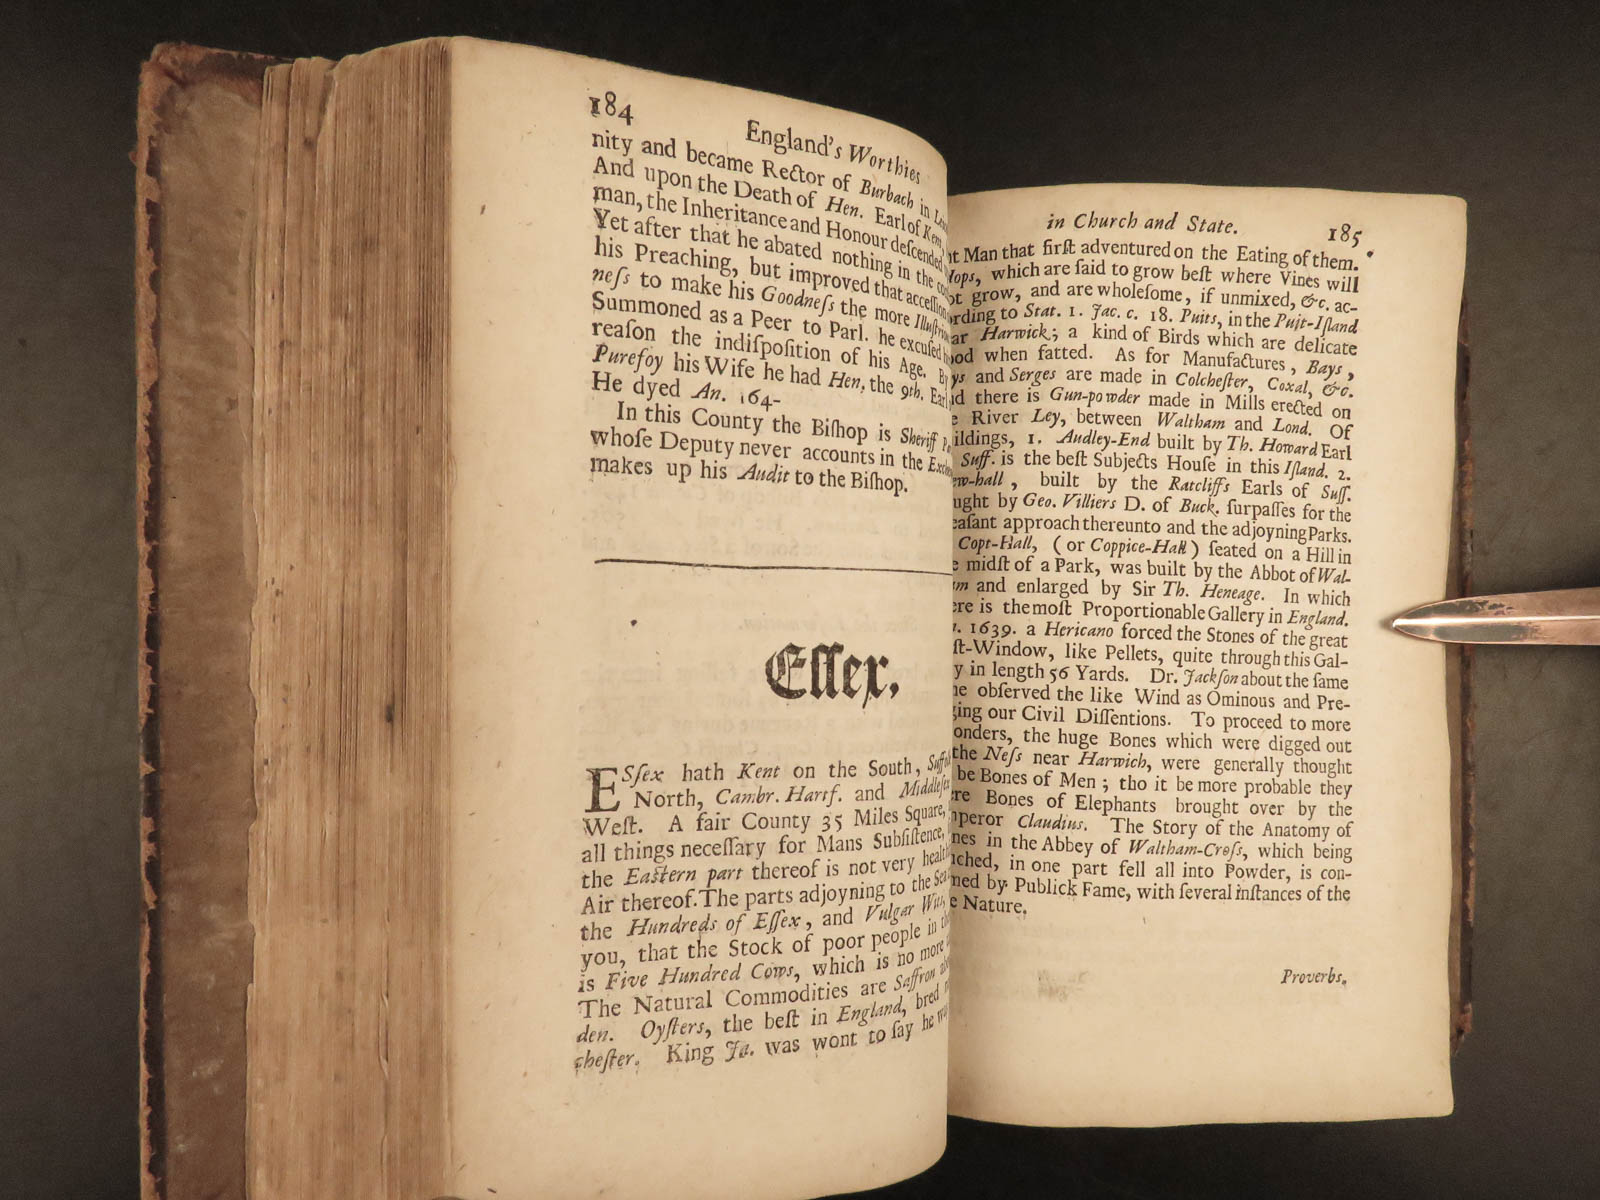 184 England's Worthies
nity and became Rector of Burbach in
And upon the Death of Hen. Earl of Kent,
man, the Inheritance and Honour deſcended
Yet after that he abated nothing in the
his Preaching, but improved that acceſſion
neſs to make his Goodneſs the more
Summoned as a Peer to Parl. he excuſed
reaſon the indiſpoſition of his Age. By
Purefoy his Wife he had Hen. the 9th. Earl
He dyed An. 164-
In this County the Biſhop is Sheriff
whoſe Deputy never accounts in the
makes up his Audit to the Biſhop.
Eſſex.
ESſex hath Kent on the South,
North, Cambr. Hartf. and Middleſex
Weſt. A fair County 35 Miles Square,
all things neceſſary for Mans Subſiſtence,
the Eaſtern part thereof is not very
Air thereof. The parts adjoyning to the
the Hundreds of Eſſex, and Vulgar
you, that the Stock of poor people in
is Five Hundred Cows, which is no more
The Natural Commodities are Saffron
den. Oyſters, the beſt in England, bred
cheſter. King Ja. was wont to ſay he
in Church and State. 185
Man that firſt adventured on the Eating of them.
which are ſaid to grow beſt where Vines will
grow, and are wholeſome, if unmixed, &c. ac-
to Stat. 1. Jac. c. 18. Puits, in the Puit-Iſland
Harwick; a kind of Birds which are delicate
when fatted. As for Manufactures, Bays,
and Serges are made in Colcheſter, Coxal, &c.
there is Gun-powder made in Mills erected on
River Ley, between Waltham and Lond. Of
1. Audley-End built by Th. Howard Earl
Suff. is the beſt Subjects Houſe in this Iſland. 2.
built by the Ratcliffs Earls of Suſſ.
by Geo. Villiers D. of Buck. ſurpaſſes for the
approach thereunto and the adjoyning Parks.
Copt-Hall, (or Coppice-Hall) ſeated on a Hill in
midſt of a Park, was built by the Abbot of Wal-
and enlarged by Sir Th. Heneage. In which
is the moſt Proportionable Gallery in England.
1639. a Hericano forced the Stones of the great
Window, like Pellets, quite through this Gal-
in length 56 Yards. Dr. Jackſon about the ſame
obſerved the like Wind as Ominous and Pre-
our Civil Diſſentions. To proceed to more
the huge Bones which were digged out
the Neſs near Harwich, were generally thought
be Bones of Men; tho it be more probable they
Bones of Elephants brought over by the
Claudius. The Story of the Anatomy of
in the Abbey of Waltham-Croſs, which being
in one part fell all into Powder, is con-
by Publick Fame, with ſeveral inſtances of the
Nature.
Proverbs.